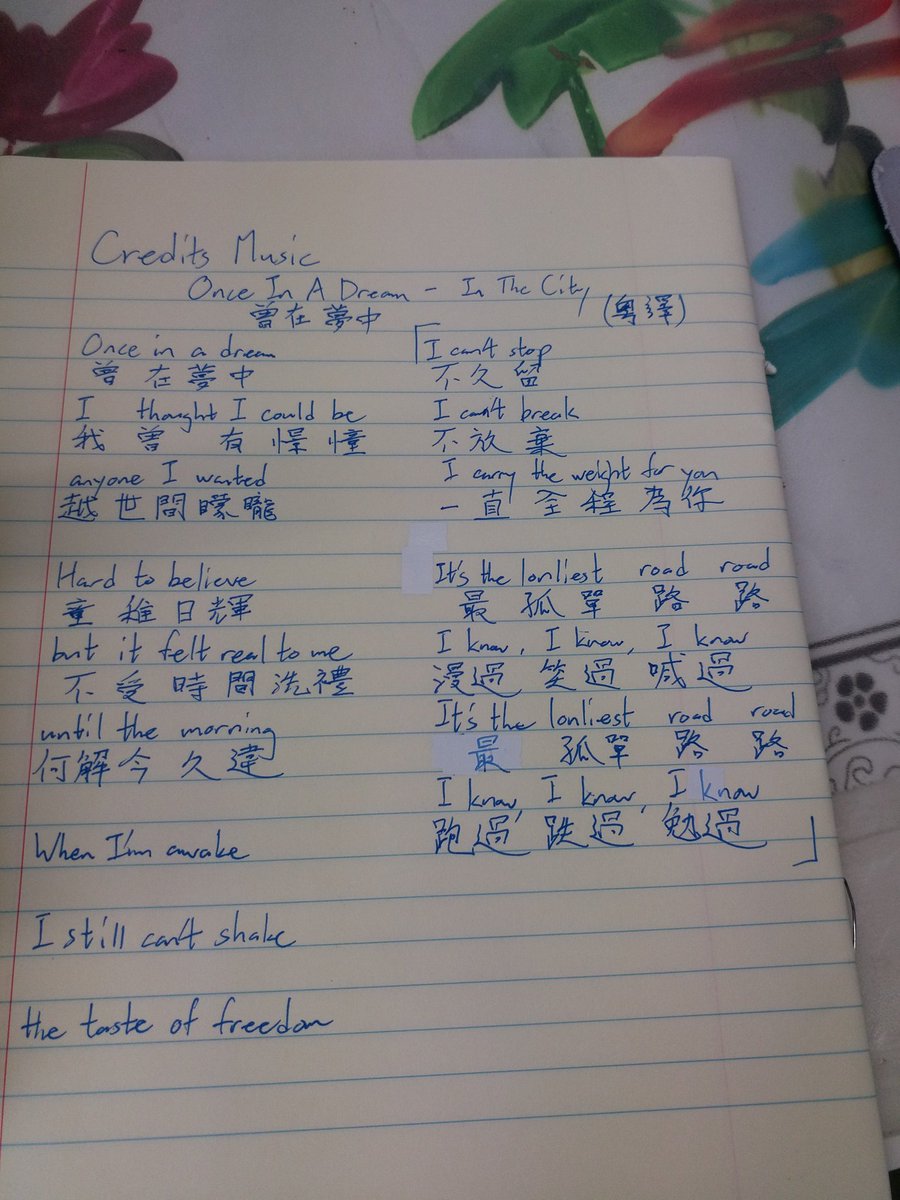 Credits Music
Once In A Dream - In The City (粵譯)
曾在夢中
Once in a dream
曾在夢中
I thought I could be
我曾 有憬憧
anyone I wanted
越世間矇矓
Hard to believe
童稚日輝
but it felt real to me
不受時間洗禮
until the morning
何解今久違
When I'm awake
I still can't shake
the taste of freedom
「I can't stop
不久留
I can't break
不放棄
I carry the weight for you
一直全程為你
It's the lonliest road road
最孤單路路
I know, I know, I know
漫過笑過喊過
It's the lonliest road road
最孤單路路
I know, I know, I know
跑過, 跌過, 勉過」